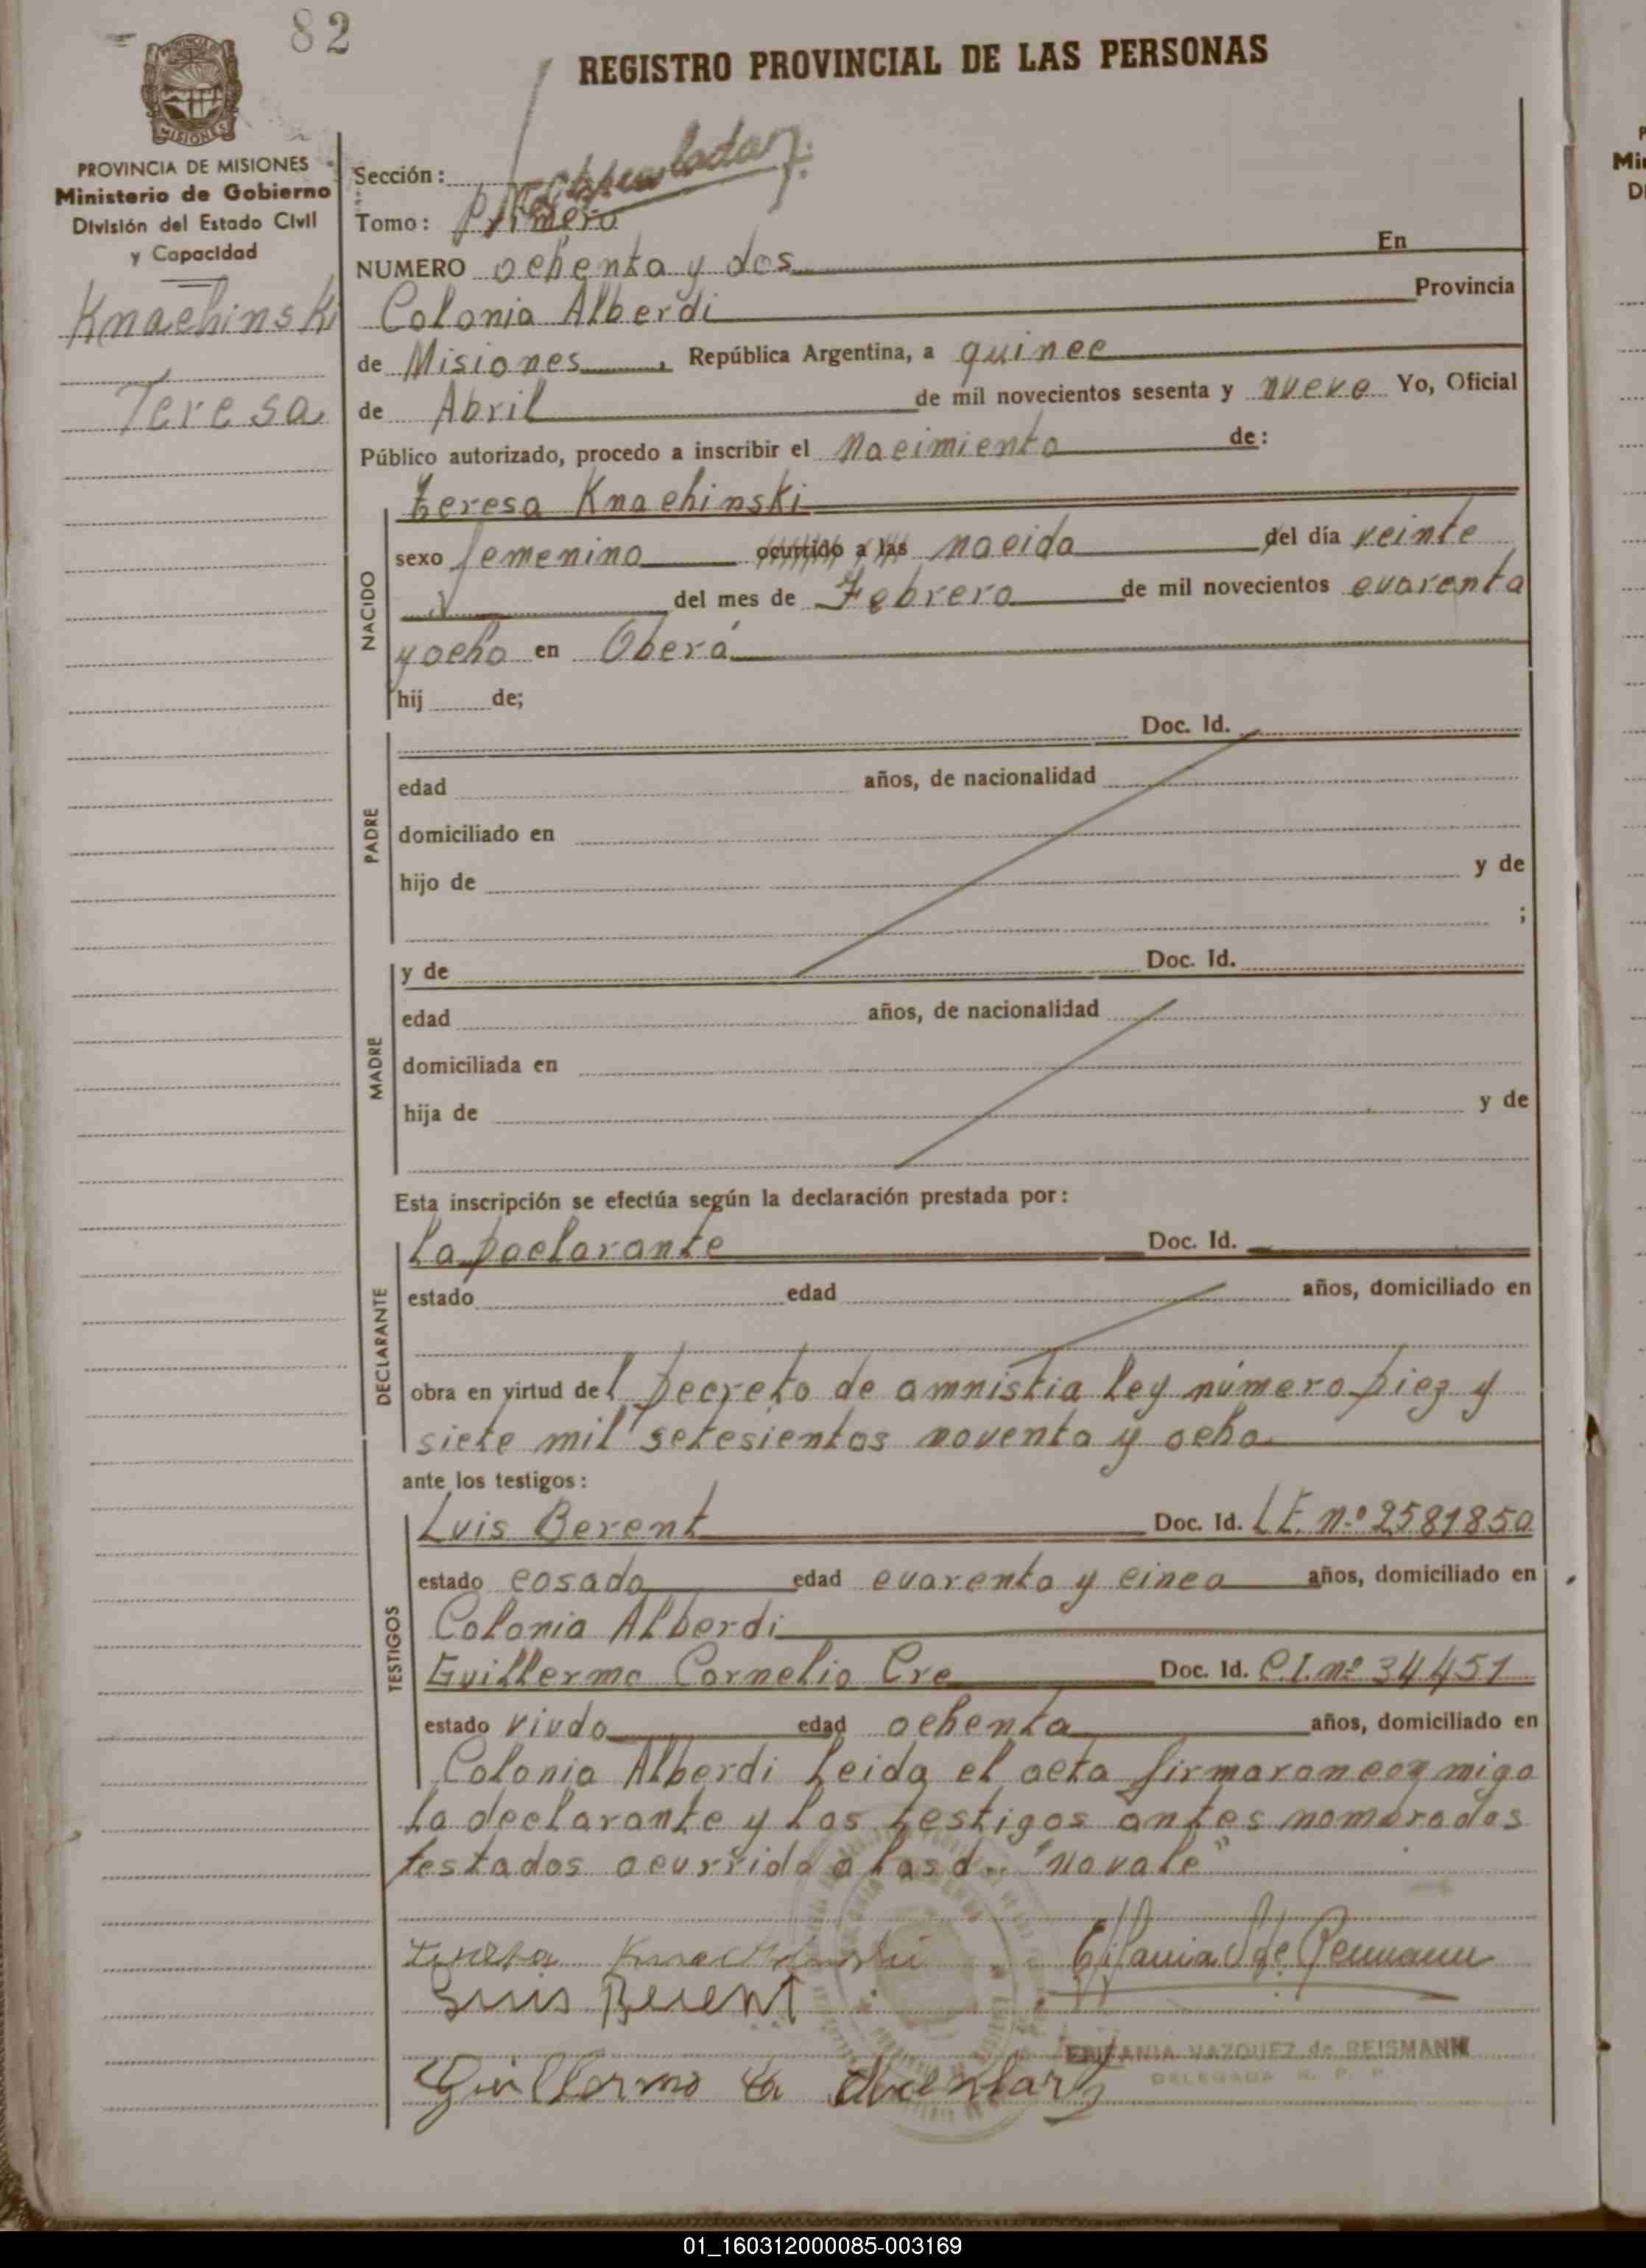 82
REGISTRO PROVINCIAL DE LAS PERSONAS
MISIONES
PROVINCIA DE MISIONES
Ministerio de Gobierno
División del Estado Civil
y Capacidad
Knachinski
Teresa
Sección:
Tomo: Primero
NUMERO ochenta y dos En
Colonia Alberdi Provincia
de Misiones, República Argentina, a quince
de Abril de mil novecientos sesenta y nueve Yo, Oficial
Público autorizado, procedo a inscribir el Nacimiento de:
NACIDO
teresa Knachinski
sexo femenino ocurrido a las nacida del día veinte
del mes de Febrero de mil novecientos cuarenta
y ocho en Oberá
hij de;
PADRE
Doc. Id.
edad años, de nacionalidad
domiciliado en
hijo de y de
;
MADRE
y de Doc. Id.
edad años, de nacionalidad
domiciliada en
hija de y de
Esta inscripción se efectúa según la declaración prestada por:
DECLARANTE
La Declarante Doc. Id.
estado edad años, domiciliado en
obra en virtud del Decreto de amnistia Ley número Diez y
siete mil setesientos noventa y ocho
ante los testigos:
TESTIGOS
Luis Berent Doc. Id. L.E. nº 2581850
estado casado edad cuarenta y cinco años, domiciliado en
Colonia Alberdi
Guillermo Cornelio Cre Doc. Id. C.I. nº 34.451
estado viudo edad ochenta años, domiciliado en
Colonia Alberdi Leida el acta firmaron conmigo
la declarante y los testigos antes nombrados
testados ocurrido a las d.. "No vale"
Teresa Knachinski
Luis Berent
Guillermo
EPIFANIA VAZQUEZ de REISMANN
DELEGADA R. P. P.
01_160312000085-003169